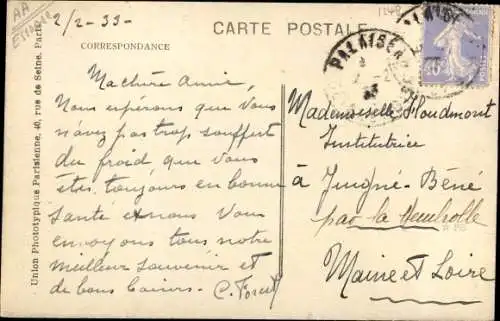 AA
2/2-33-
CARTE POSTALE
CORRESPONDANCE
Ma chère Amie,
Nous esperons que vous
n'avez pas trop souffert
du froid que vous
êtes toujours en bonne
santé et nous vous
envoyons tous notre
meilleur souvenir et
de bons baisers. C. Forest
Union Phototypique Parisienne, 40, rue de Seine, Paris
PALAISEAU
40
Mademoiselle Houdmont
Institutrice
à Juigné-Béné
par la Membrolle
Maine et Loire